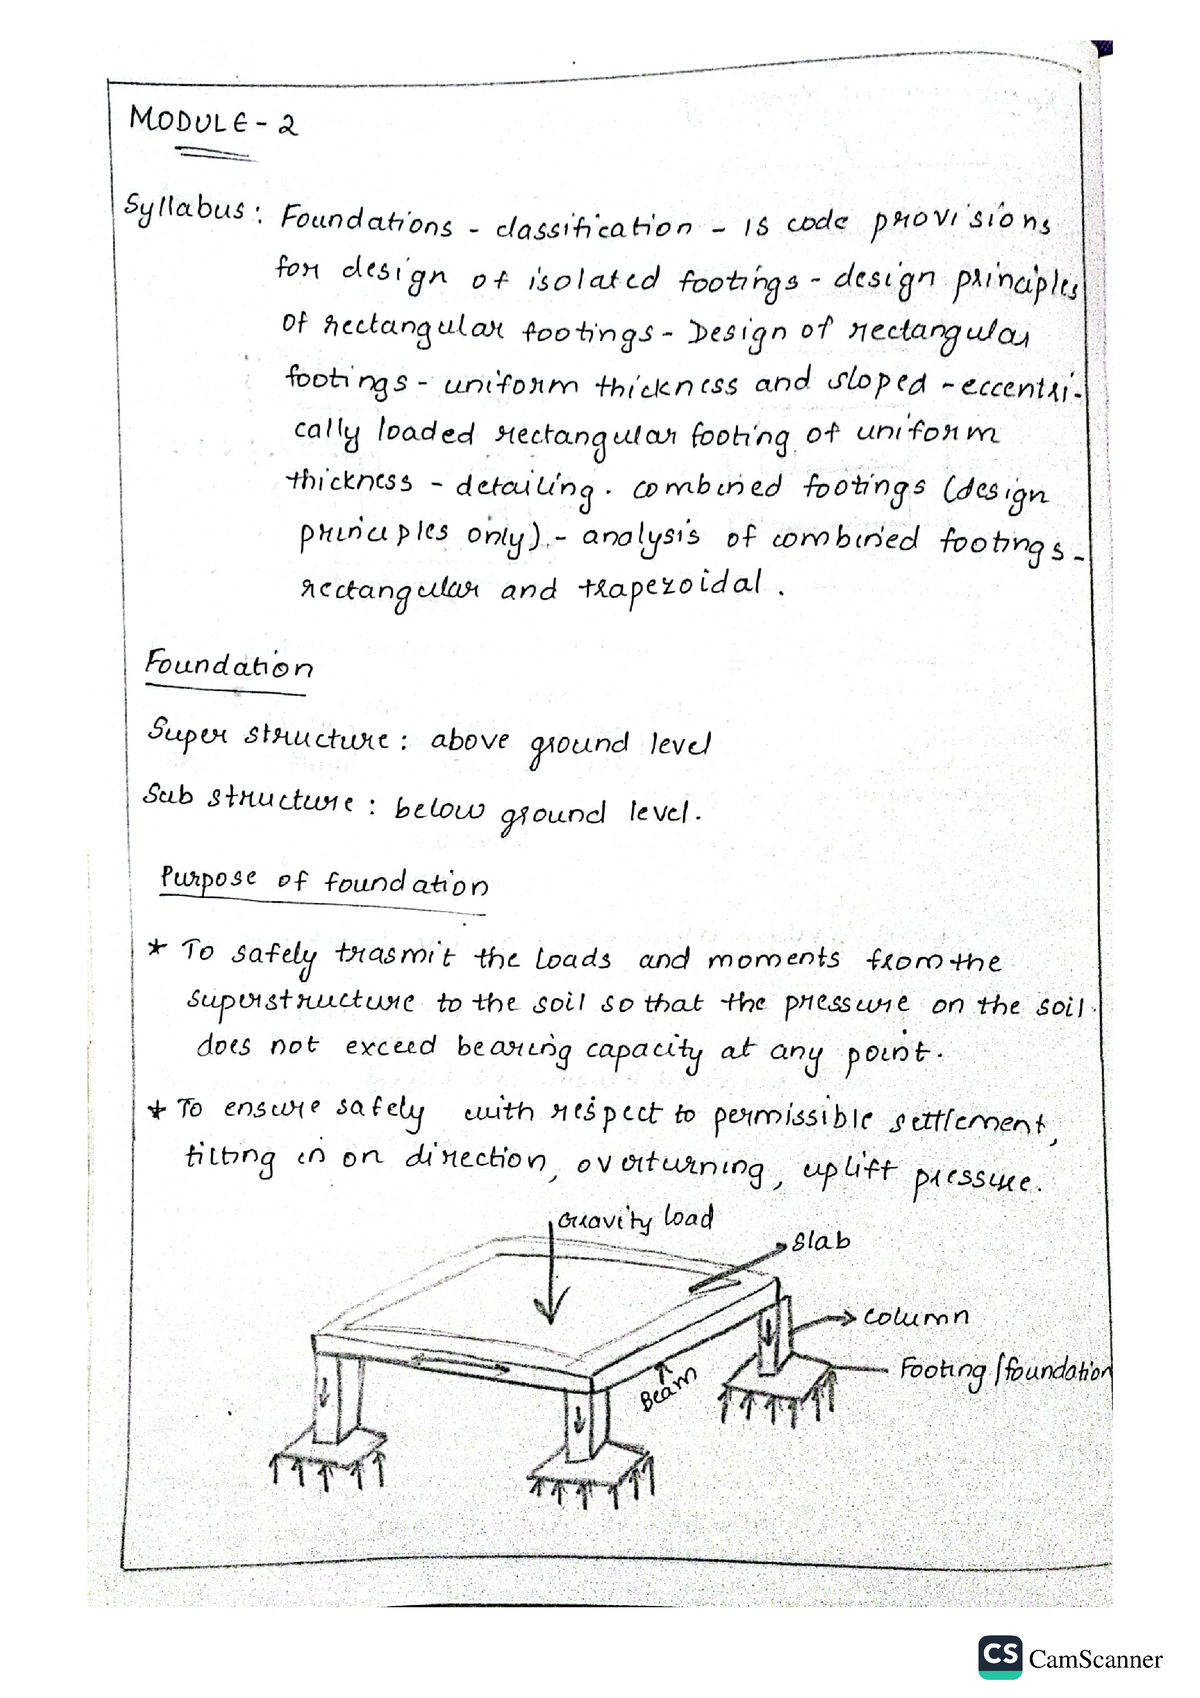 MODULE - 2
Syllabus: Foundations - classification - IS code provisions
for design of isolated footings - design principles
of rectangular footings - Design of rectangular
footings - uniform thickness and sloped - eccentri-
cally loaded rectangular footing of uniform
thickness - detailing. combined footings (design
principles only). - analysis of combined footings -
rectangular and trapezoidal.
Foundation
Super structure: above ground level
Sub structure: below ground level.
Purpose of foundation
* To safely trasmit the loads and moments from the
superstructure to the soil so that the pressure on the soil
does not exceed bearing capacity at any point.
* To ensure safely with respect to permissible settlement,
tilting in on direction, overturning, uplift pressure.
Gravity load
Slab
column
Footing/foundation
Beam
CS CamScanner